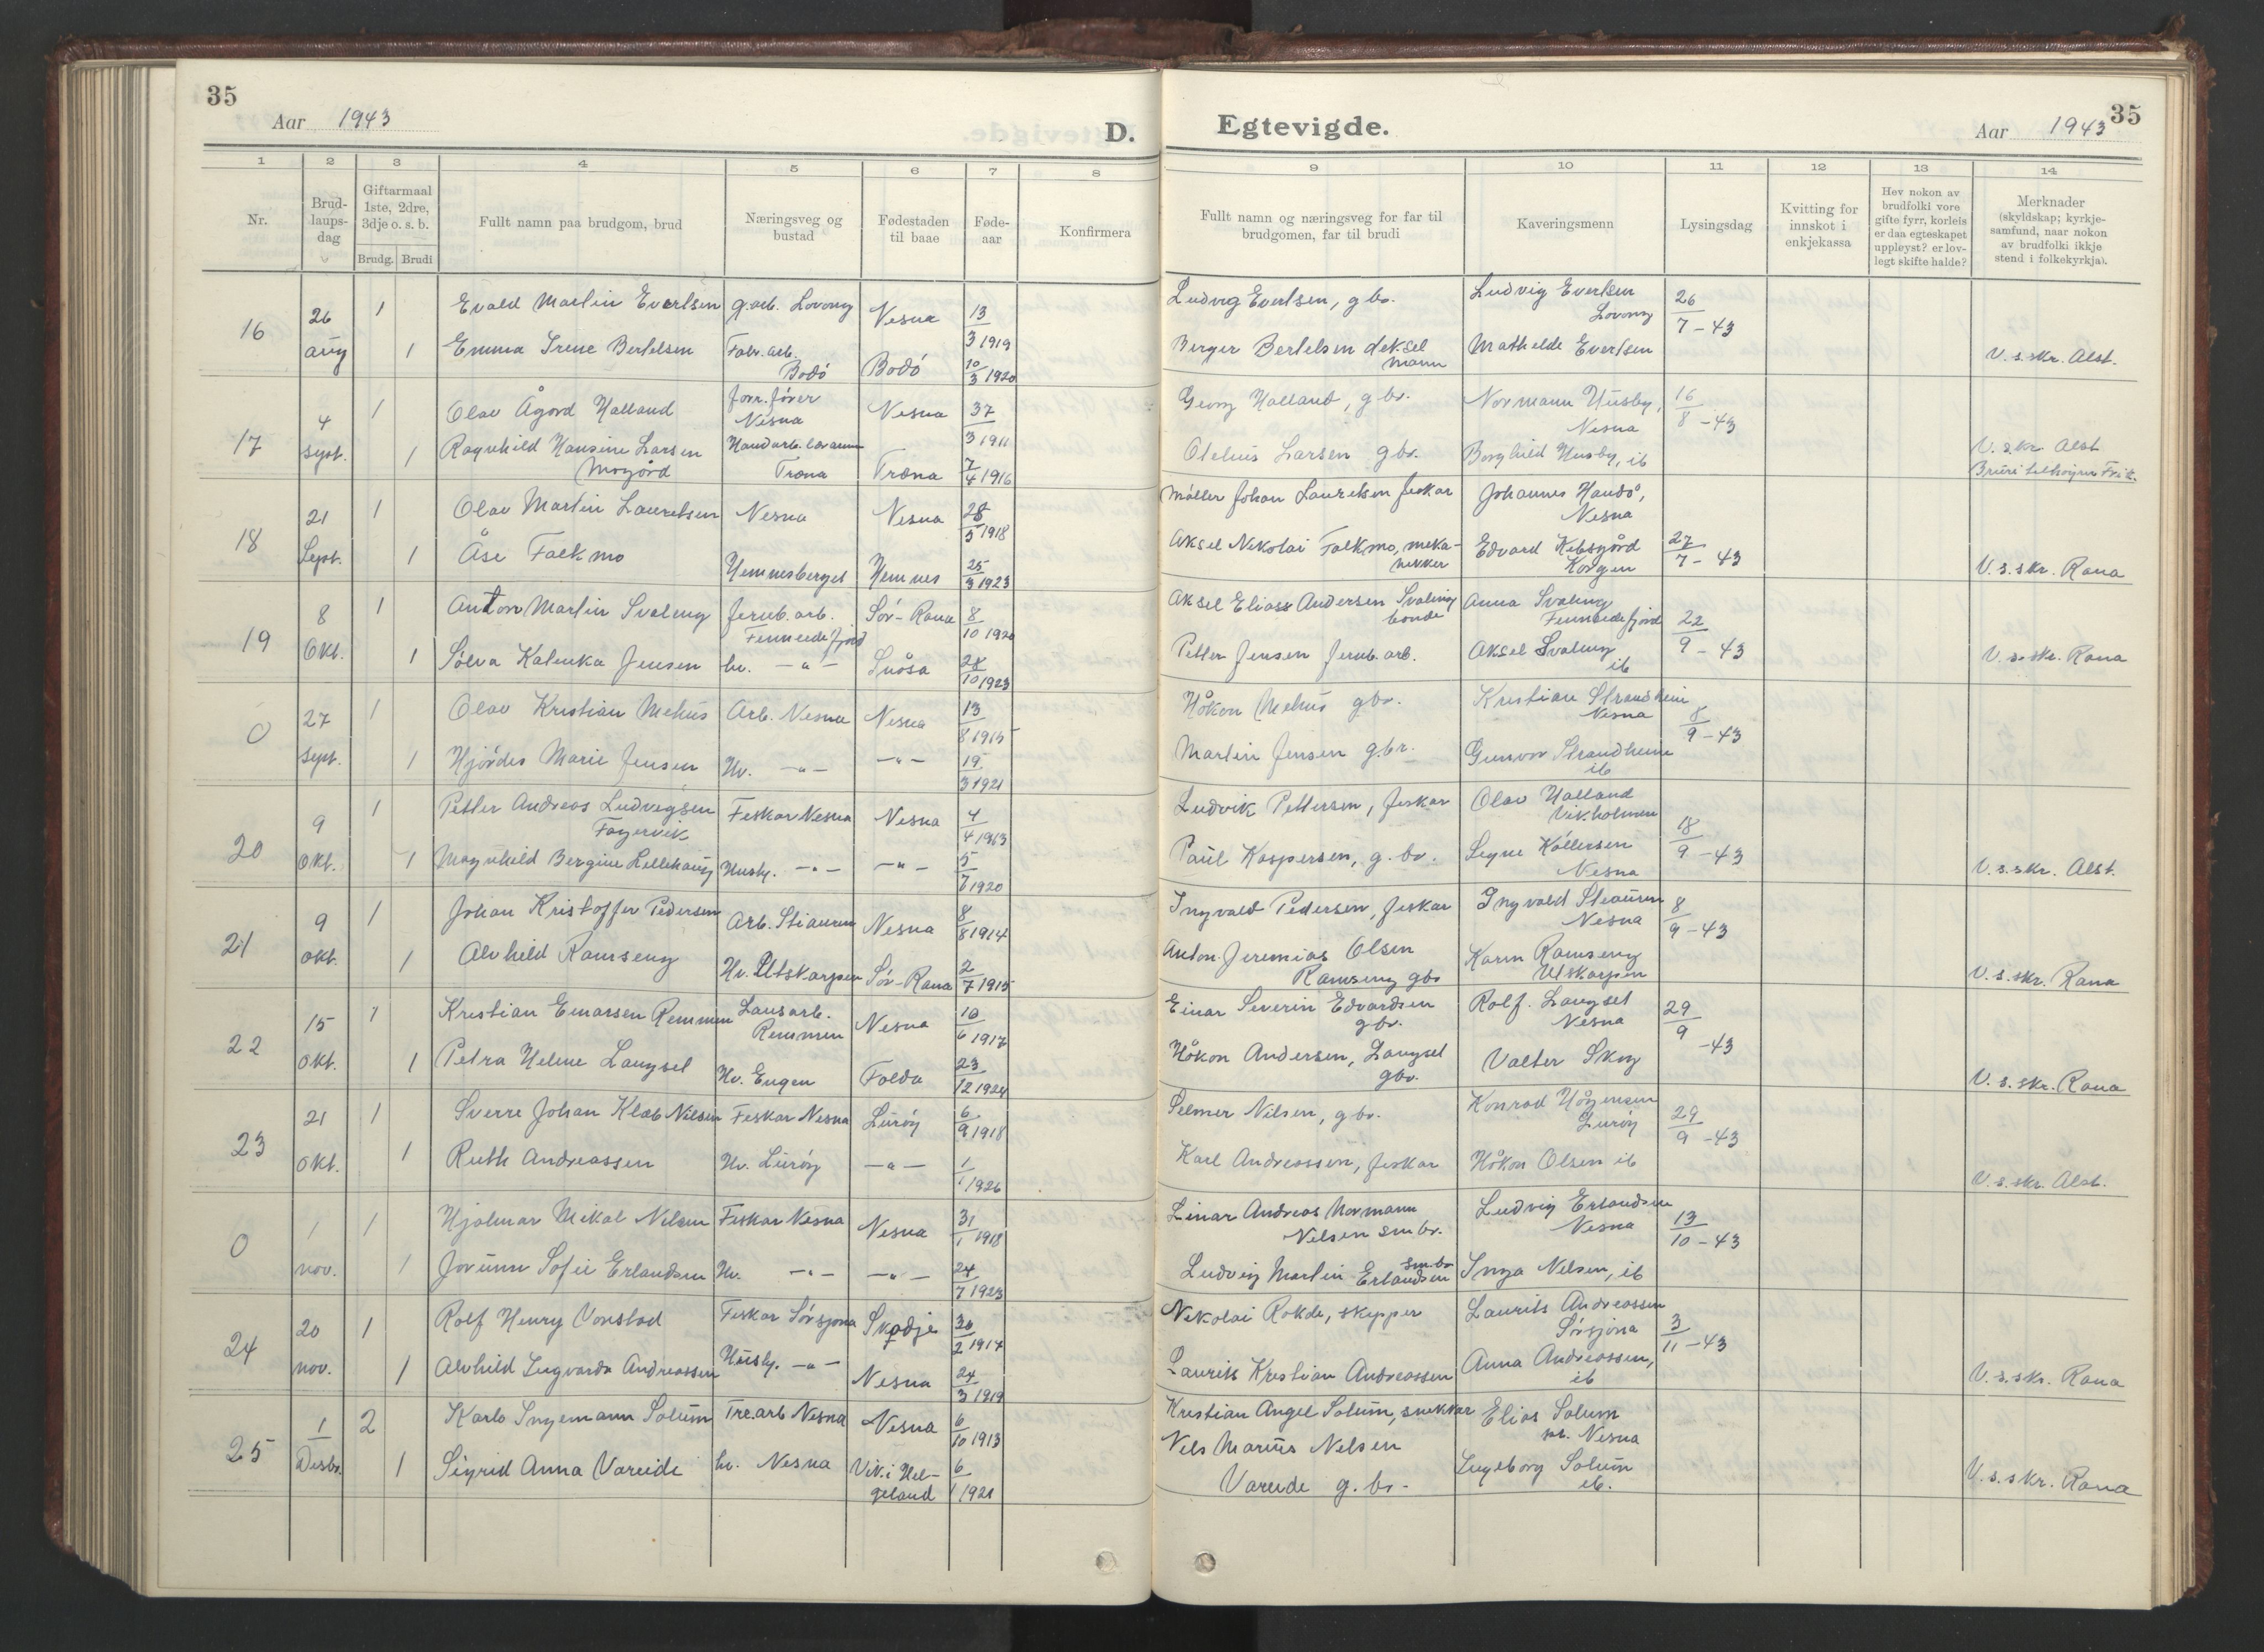 35
Aar 1943
D.
1 2 3 4 5 6 7 8
Nr.
Brud-
laups-
dag
Giftarmaal
1ste, 2dre,
3dje o. s. b.
Brudg. Brudi
Fullt namn paa brudgom, brud
Næringsveg og
bustad
Fødestaden
til baae
Føde-
aar
Konfirmera
16 26 aug 1 Evald Martin Evertsen g.arb. Lovong Nesna 13/3 1919
1 Emma Irene Bertelsen Fabr. arb. Bodó Bodó 10/3 1920
17 4 sept. 1 Olav Ågord Halland forr.fórer Nesna Nesna 37/3 1911
1 Ragnhild Hansine Larsen Træna Træna 7/4 1916
18 21 Sept. 1 Olav Martin Lauretsen Nesna Nesna 28/5 1918
1 Åse Falkmo Hemnesberget Hemnes 25/3 1923
19 8 Okt. 1 Anton Martin Svaleng Jernb. arb. Finneidfjord Sór-Rana 8/10 1920
1 Sólva Kalenka Jensen hv. — " — Snåsa 28/10 1923
0 27 sept. 1 Olav Kristian Mehus Arb. Nesna Nesna 13/8 1915
1 Hjórdis Marie Jensen Hv. — " — — " — 19/3 1921
20 9 okt. 1 Petter Andreas Ludvigsen Fagervik Fiskar Nesna Nesna 4/4 1913
1 Magnhild Bergine Lillehaug Hush. — " — — " — 5/7 1920
21 9 okt. 1 Johan Kristoffer Pedersen Arb. Stiauren Nesna 8/8 1914
1 Alvhild Ramseng Hv. Utskarpen Sór-Rana 2/7 1915
22 15 okt. 1 Kristian Einarsen Remmen Lausarb. Remmen Nesna 10/6 1917
1 Petra Helene Langset Hv. Engen Folda 23/12 1924
23 21 okt. 1 Sverre Johan Klæb Nilsen Fiskar Nesna Luróy 6/9 1918
1 Ruth Andreassen Hv. Luróy — " — 1/1 1926
0 1 nov. 1 Hjalmar Mikal Nilsen Fiskar Nesna Nesna 31/1 1918
1 Jorunn Sofie Erlandsen Hv. — " — — " — 24/7 1923
24 20 nov. 1 Rolf Henry Vonstad Fiskar Sórsjona Skodje 20/2 1917
1 Alvhild Ingvarda Andreassen Hush. — " — Nesna 24/3 1919
25 1 Desbr. 2 Karlo Ingemann Solum Tre.arb Nesna Nesna 6/10 1913
1 Sigrid Anna Vareide hv. Nesna Vik i Helgeland 6/1 1921
Egtevigde.
Aar 1943
35
9 10 11 12 13 14
Fullt namn og næringsveg for far til
brudgomen, far til brudi
Kaveringsmenn
Lysingsdag
Kvitting for
innskot i
enkjekassa
Hev nokon av
brudfolki vore
gifte fyrr, korleis
er daa egteskapet
uppløyst? er lov-
legt skifte halde?
Merknader
(skyldskap; kyrkje-
samfund, naar nokon
av brudfolki ikkje
stend i folkekyrkja).
Ludvig Evertsen, g br. Ludvig Evertsen Lovong 26/7 - 43
Berger Bertelsen deksel mann Mathilde Evertsen V. s. skr. Alst.
Georg Halland, g br. Normann Husby, Nesna 16/8 - 43
Larsen g br. Borghild Husby, ib V. s. skr. Alst
Móller Johan Lauretsen fiskar Johannes Handå, Nesna
Aksel Nikolai Falkmo, mekanikker Edvard Kibsgård Korgen 27/7 - 43 V. s. skr. Rana
Aksel Eliass Andersen Svaleng bonde Anna Svaleng Finneidfjord 22/9 - 43
Petter Jensen Jernb. arb. Aksel Svaleng ib V. s. skr. Rana
Håkon Mehus gbr. Kristian Strandheim Nesna 8/9 - 43
Martin Jensen g.br. Gunvor Strandheim ib
Ludvik Pettersen, fiskar Olav Halland Vikholmen 18/9 - 43
Paul Kaspersen, g. br. Signe Kóllersen Nesna V. s. skr. Alst.
Ingvald Pedersen, fiskar Ingvald Stiauren Nesna 8/9 - 43
Anton Jeremias Olsen Ramseng gbr Karin Ramseng Utskarpen V. s. skr. Rana
Einar Severin Edvardsen gbr. Rolf. Langset Nesna 29/9 - 43
Håkon Andersen, Langset gbr. Valter Skog V. s. skr. Rana
Selmer Nilsen, gbr. Konrad Hågensen Luróy 29/9 - 43
Karl Andreassen, fiskar Håkon Olsen ib V. s. skr. Alst.
Einar Andreas Normann Nilsen smbr. Ludvig Erlandsen Nesna 13/10 - 43
Ludvig Martin Erlandsen sm.br Inga Nilsen, ib
Nikolai Rokde, skipper Laurits Andreassen Sórsjona 3/11 - 43
Laurits Kristian Andreassen Anna Andreassen, ib V. s. skr. Rana
Kristian Angel Solum, snekkar Elias Solum Nesna
Nils Marius Nilsen Vareide g. br. Ingeborg Solum ib. V. s. skr. Rana